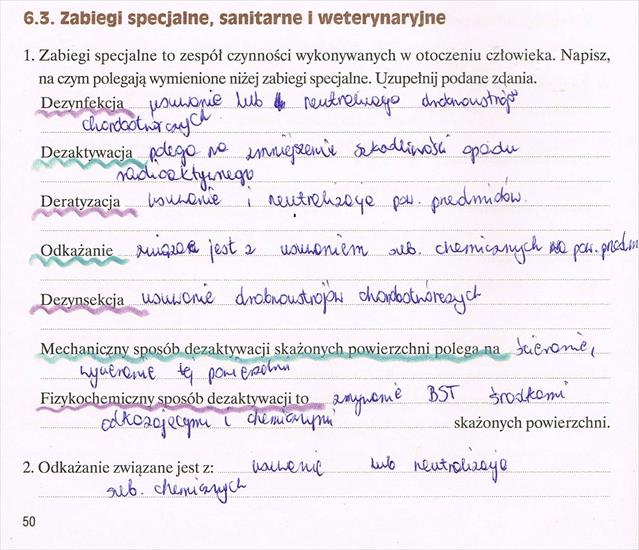 6.3. Zabiegi specjalne, sanitarne i weterynaryjne
1. Zabiegi specjalne to zespół czynności wykonywanych w otoczeniu człowieka. Napisz,
na czym polegają wymienione niżej zabiegi specjalne. Uzupełnij podane zdania.
Dezynfekcja usuwanie lub neutralizacja drobnoustrojów
chorobotwórczych
Dezaktywacja polega na zmniejszenie szkodliwości opadu
radioaktywnego
Deratyzacja usuwanie i neutralizacja pow. przedmiotów.
Odkażanie związane jest z usuwaniem sub. chemicznych na pow. przedm
Dezynsekcja usuwanie drobnoustrojów chorobotwórczych
Mechaniczny sposób dezaktywacji skażonych powierzchni polega na ścieranie,
wycieranie tej powierzchni
Fizykochemiczny sposób dezaktywacji to zmywanie BST środkami
odkażającymi i chemicznymi skażonych powierzchni.
2. Odkażanie związane jest z: usuwanie lub neutralizacja
sub. chemicznych
50